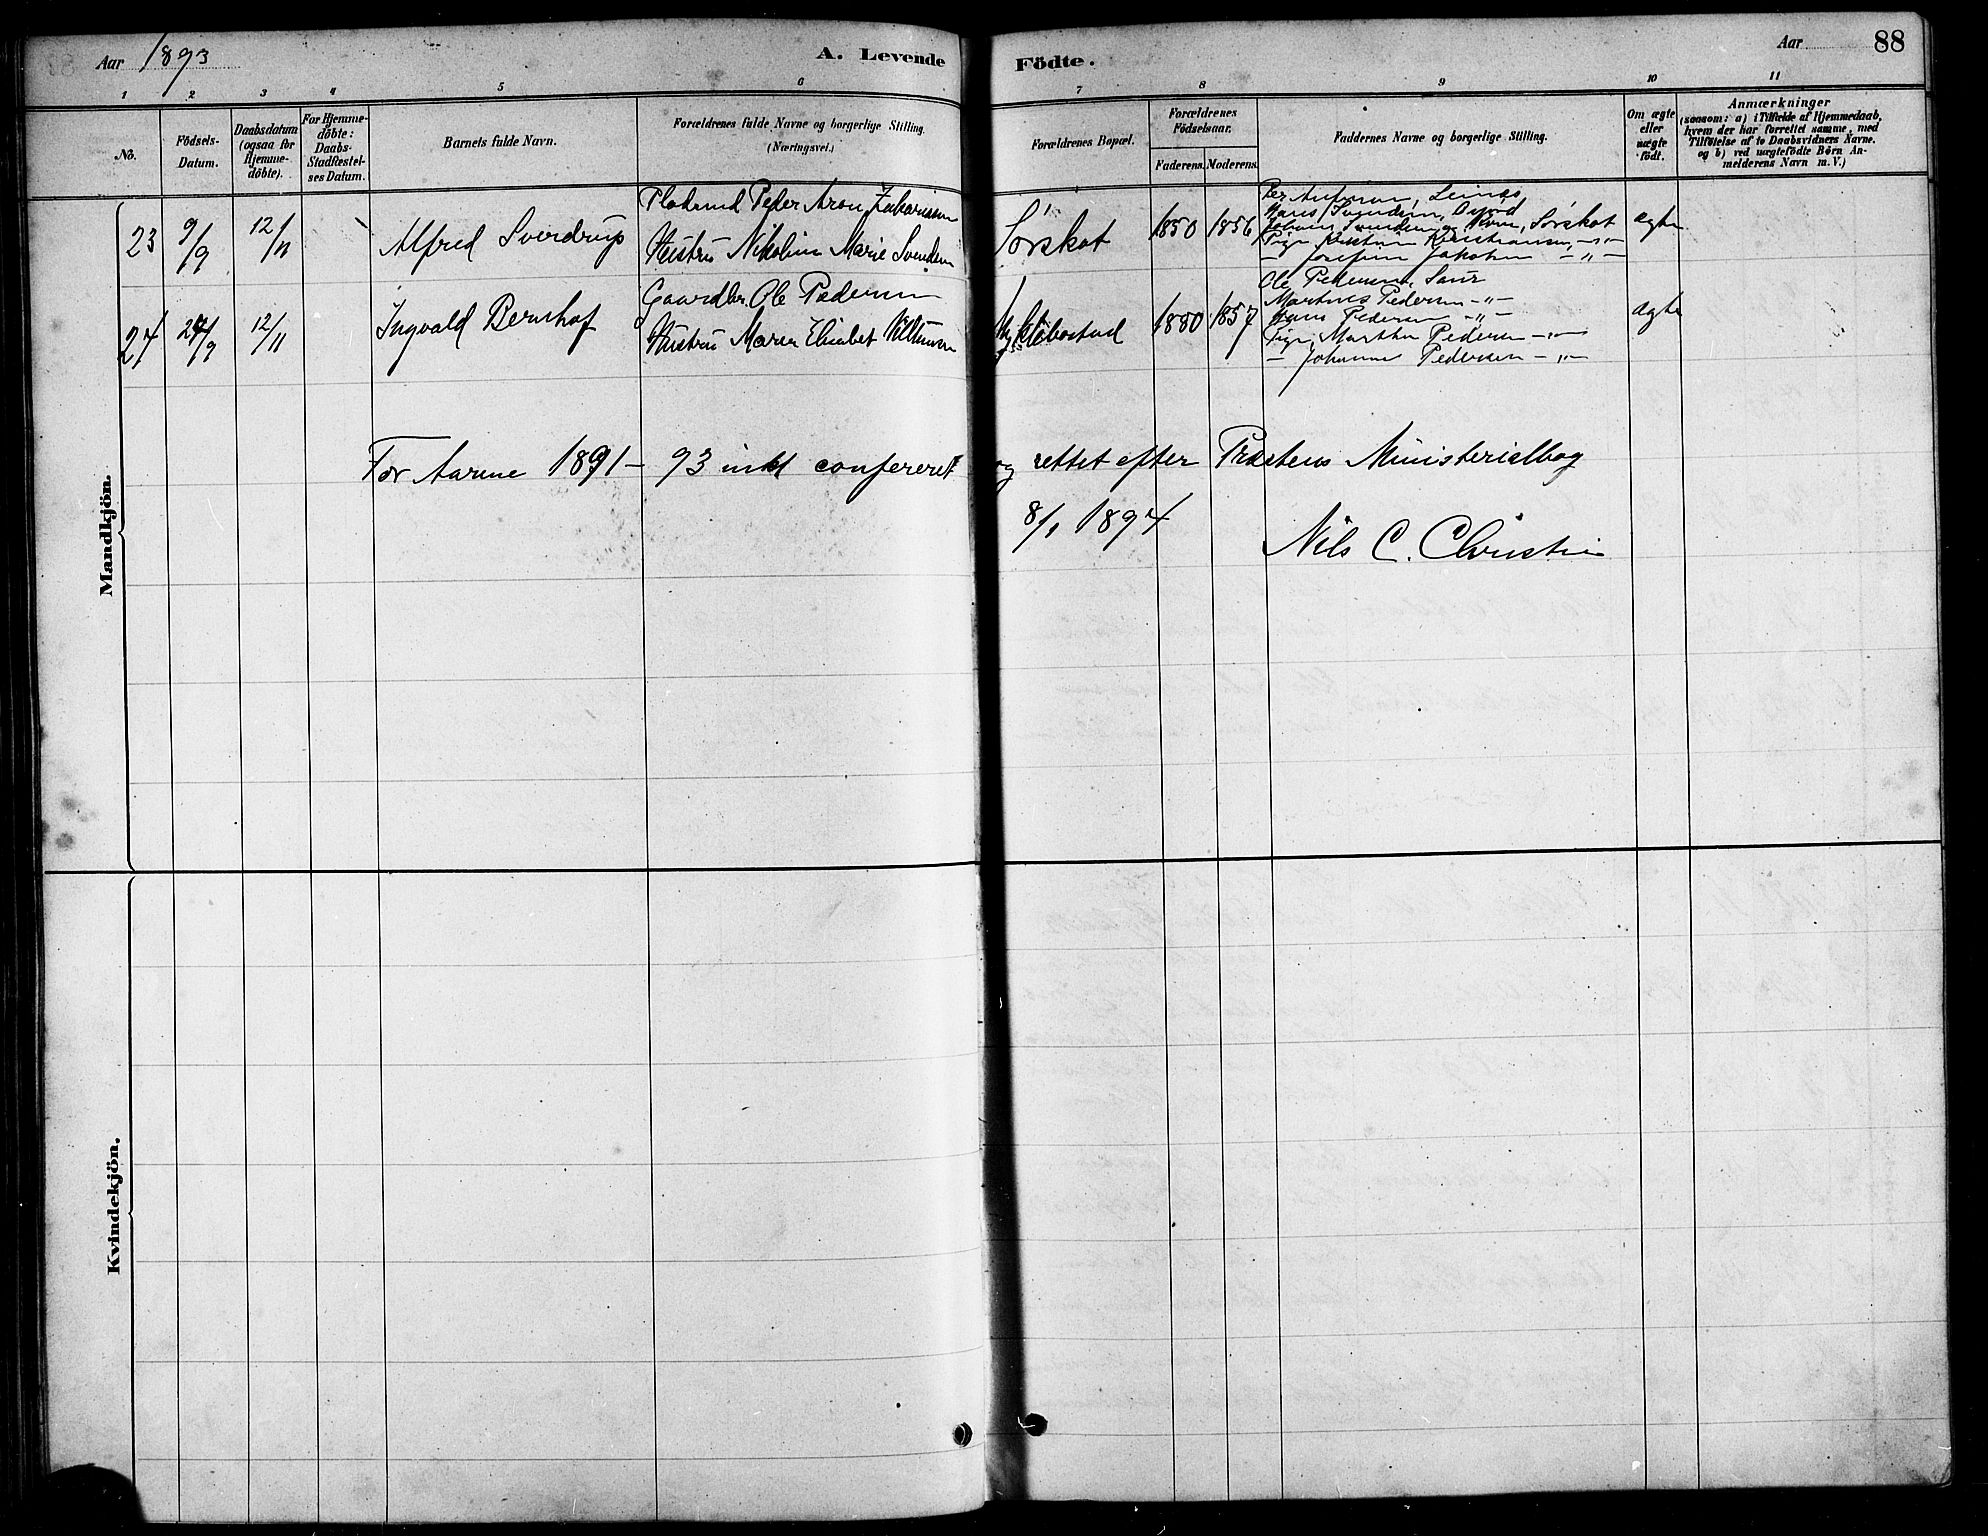 Aar 1893 A. Levende Födte. Aar 88
1 2 3 4 5 6 7 8 9 10 11
No.
Födsels-Datum.
Daabsdatum (ogsaa for Hjemmedöbte).
For Hjemmedöbte: Daabs-Stadfæstelses Datum.
Barnets fulde Navn.
Forældrenes fulde Navne og borgerlige Stilling. (Næringsvei.)
Forældrenes Bopæl.
Forældrenes Födselsaar.
Faderens. Moderens.
Faddernes Navne og borgerlige Stilling.
Om ægte eller uægte födt.
Anmærkninger
(saasom: a) i Tilfælde af Hjemmedaab,
hvem der har forrettet samme, med
Tilföielse af to Daabsvidners Navne.
og b) ved uægtefödte Börn Anmelderens Navn m. V.)
Mandkjön.
23 9/9 12/11 Alfred Sverdrup
Peder Aron Zakariassen
Hustru Nikoline Marie Svendsen
Sörskot 1850 1856
Leines
Hans Svendsen,
Johan Svendsen og Kone, Sörskot
Pige Kristiansen, -"-
— Josefine Jakobsen -"-
ægte
24 24/9 12/11 Ingvald Bernhof
Gaardbr. Ole Pedersen
Hustru Maren Elisabet
Myklebostad 1850 1857
Ole Pedersen,
Martines Pedersen -"-
Hans Pedersen -"-
Pige Martha Pedersen -"-
— Johanna Pedersen -"-
ægte
For Aarene 1891-93 inkl confereret og rettet efter Prestens Ministerialbog
8/1 1894
Nils C. Christie
Kvindekjön.